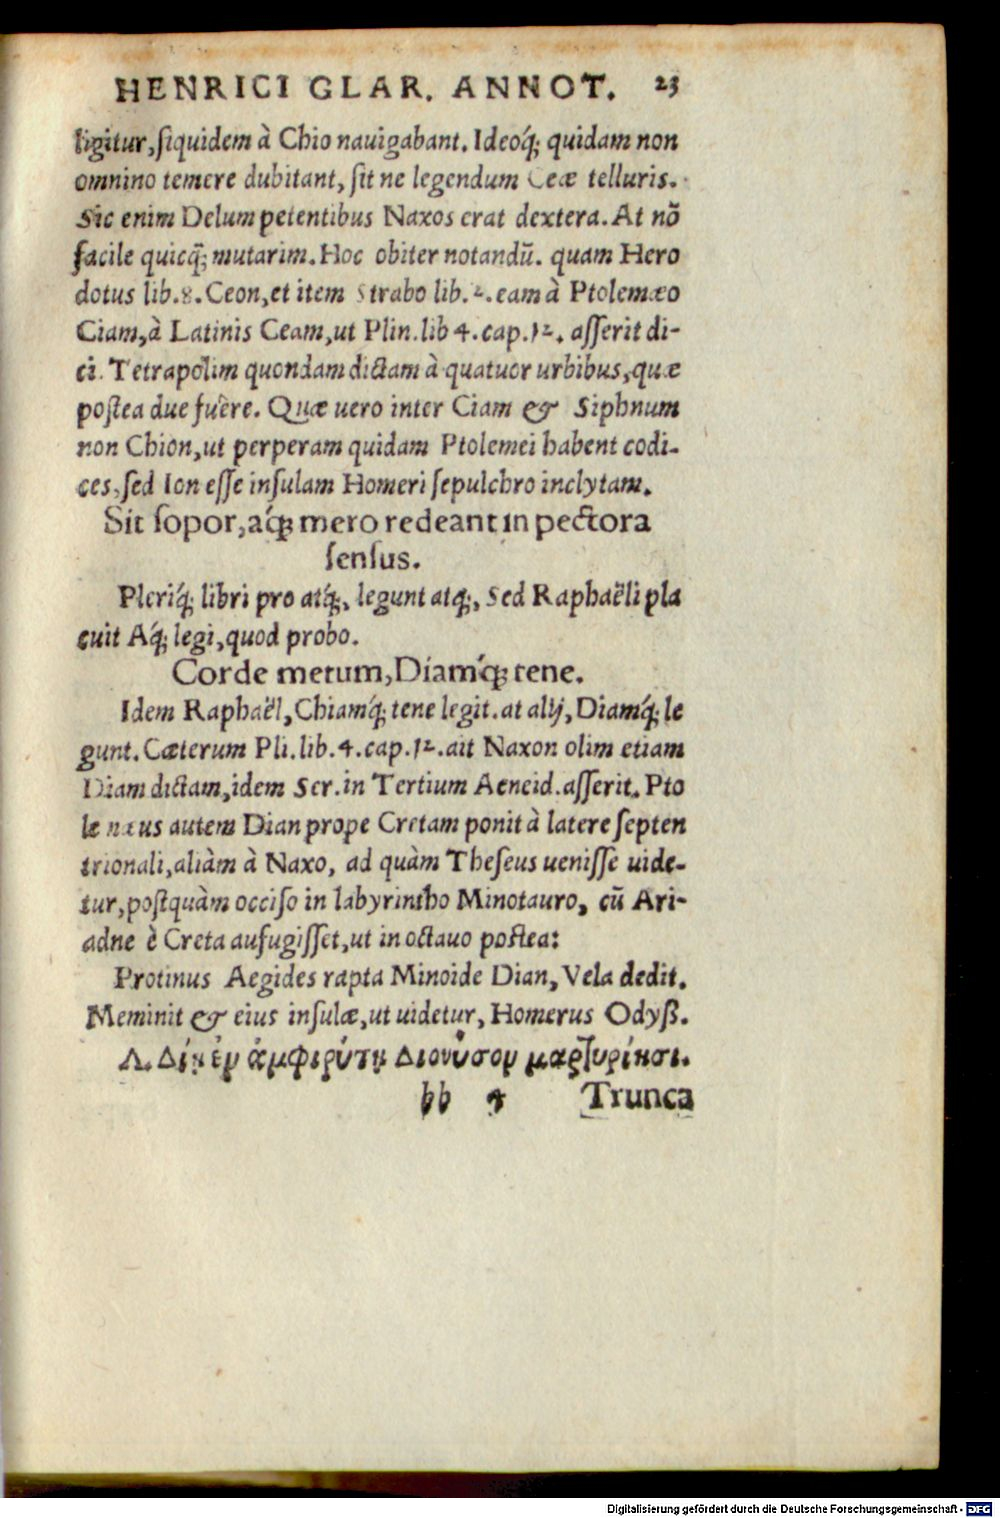 HENRICI GLAR. ANNOT. 23
ligitur, siquidem à Chio nauigabant. Ideoq́; quidam non
omnino temere dubitant, sit ne legendum Ceæ telluris.
Sic enim Delum petentibus Naxos erat dextera. At nō
facile quicq̄; mutarim. Hoc obiter notandū. quam Hero
dotus lib.8. Ceon, et item Strabo lib.2. eam à Ptolemæo
Ciam, à Latinis Ceam, ut Plin. lib 4. cap.12. asserit di-
ci. Tetrapolim quondam dictam à quatuor urbibus, quæ
postea due fuêre. Quæ uero inter Ciam & Siphnum
non Chion, ut perperam quidam Ptolemei habent codi-
ces, sed Ion esse insulam Homeri sepulchro inclytam.
Sit sopor, aq́; mero redeant in pectora
sensus.
Pleriq́; libri pro atq́;, legunt atq;, Sed Raphaëli pla
cuit Aq́; legi, quod probo.
Corde metum, Diamq́; tene.
Idem Raphaël, Chiamq́; tene legit. at alij, Diamq́; le
gunt. Cæterum Pli. lib.4. cap.12. ait Naxon olim etiam
Diam dictam, idem Ser. in Tertium Aeneid. asserit. Pto
lemæus autem Dian prope Cretam ponit à latere septen
trionali, aliàm à Naxo, ad quàm Theseus uenisse uide-
tur, postquàm occiso in labyrintho Minotauro, cū Ari-
adne è Creta aufugisset, ut in octauo postea:
Protinus Aegides rapta Minoide Dian, Vela dedit.
Meminit & eius insulæ, ut uidetur, Homerus Odyß.
Λ. Δίῃ ἐν ἀμφιρύτῃ Διονύσου μαρτυρίῃσι.
bb 4 Trunca
Digitalisierung gefördert durch die Deutsche Forschungsgemeinschaft - DFG